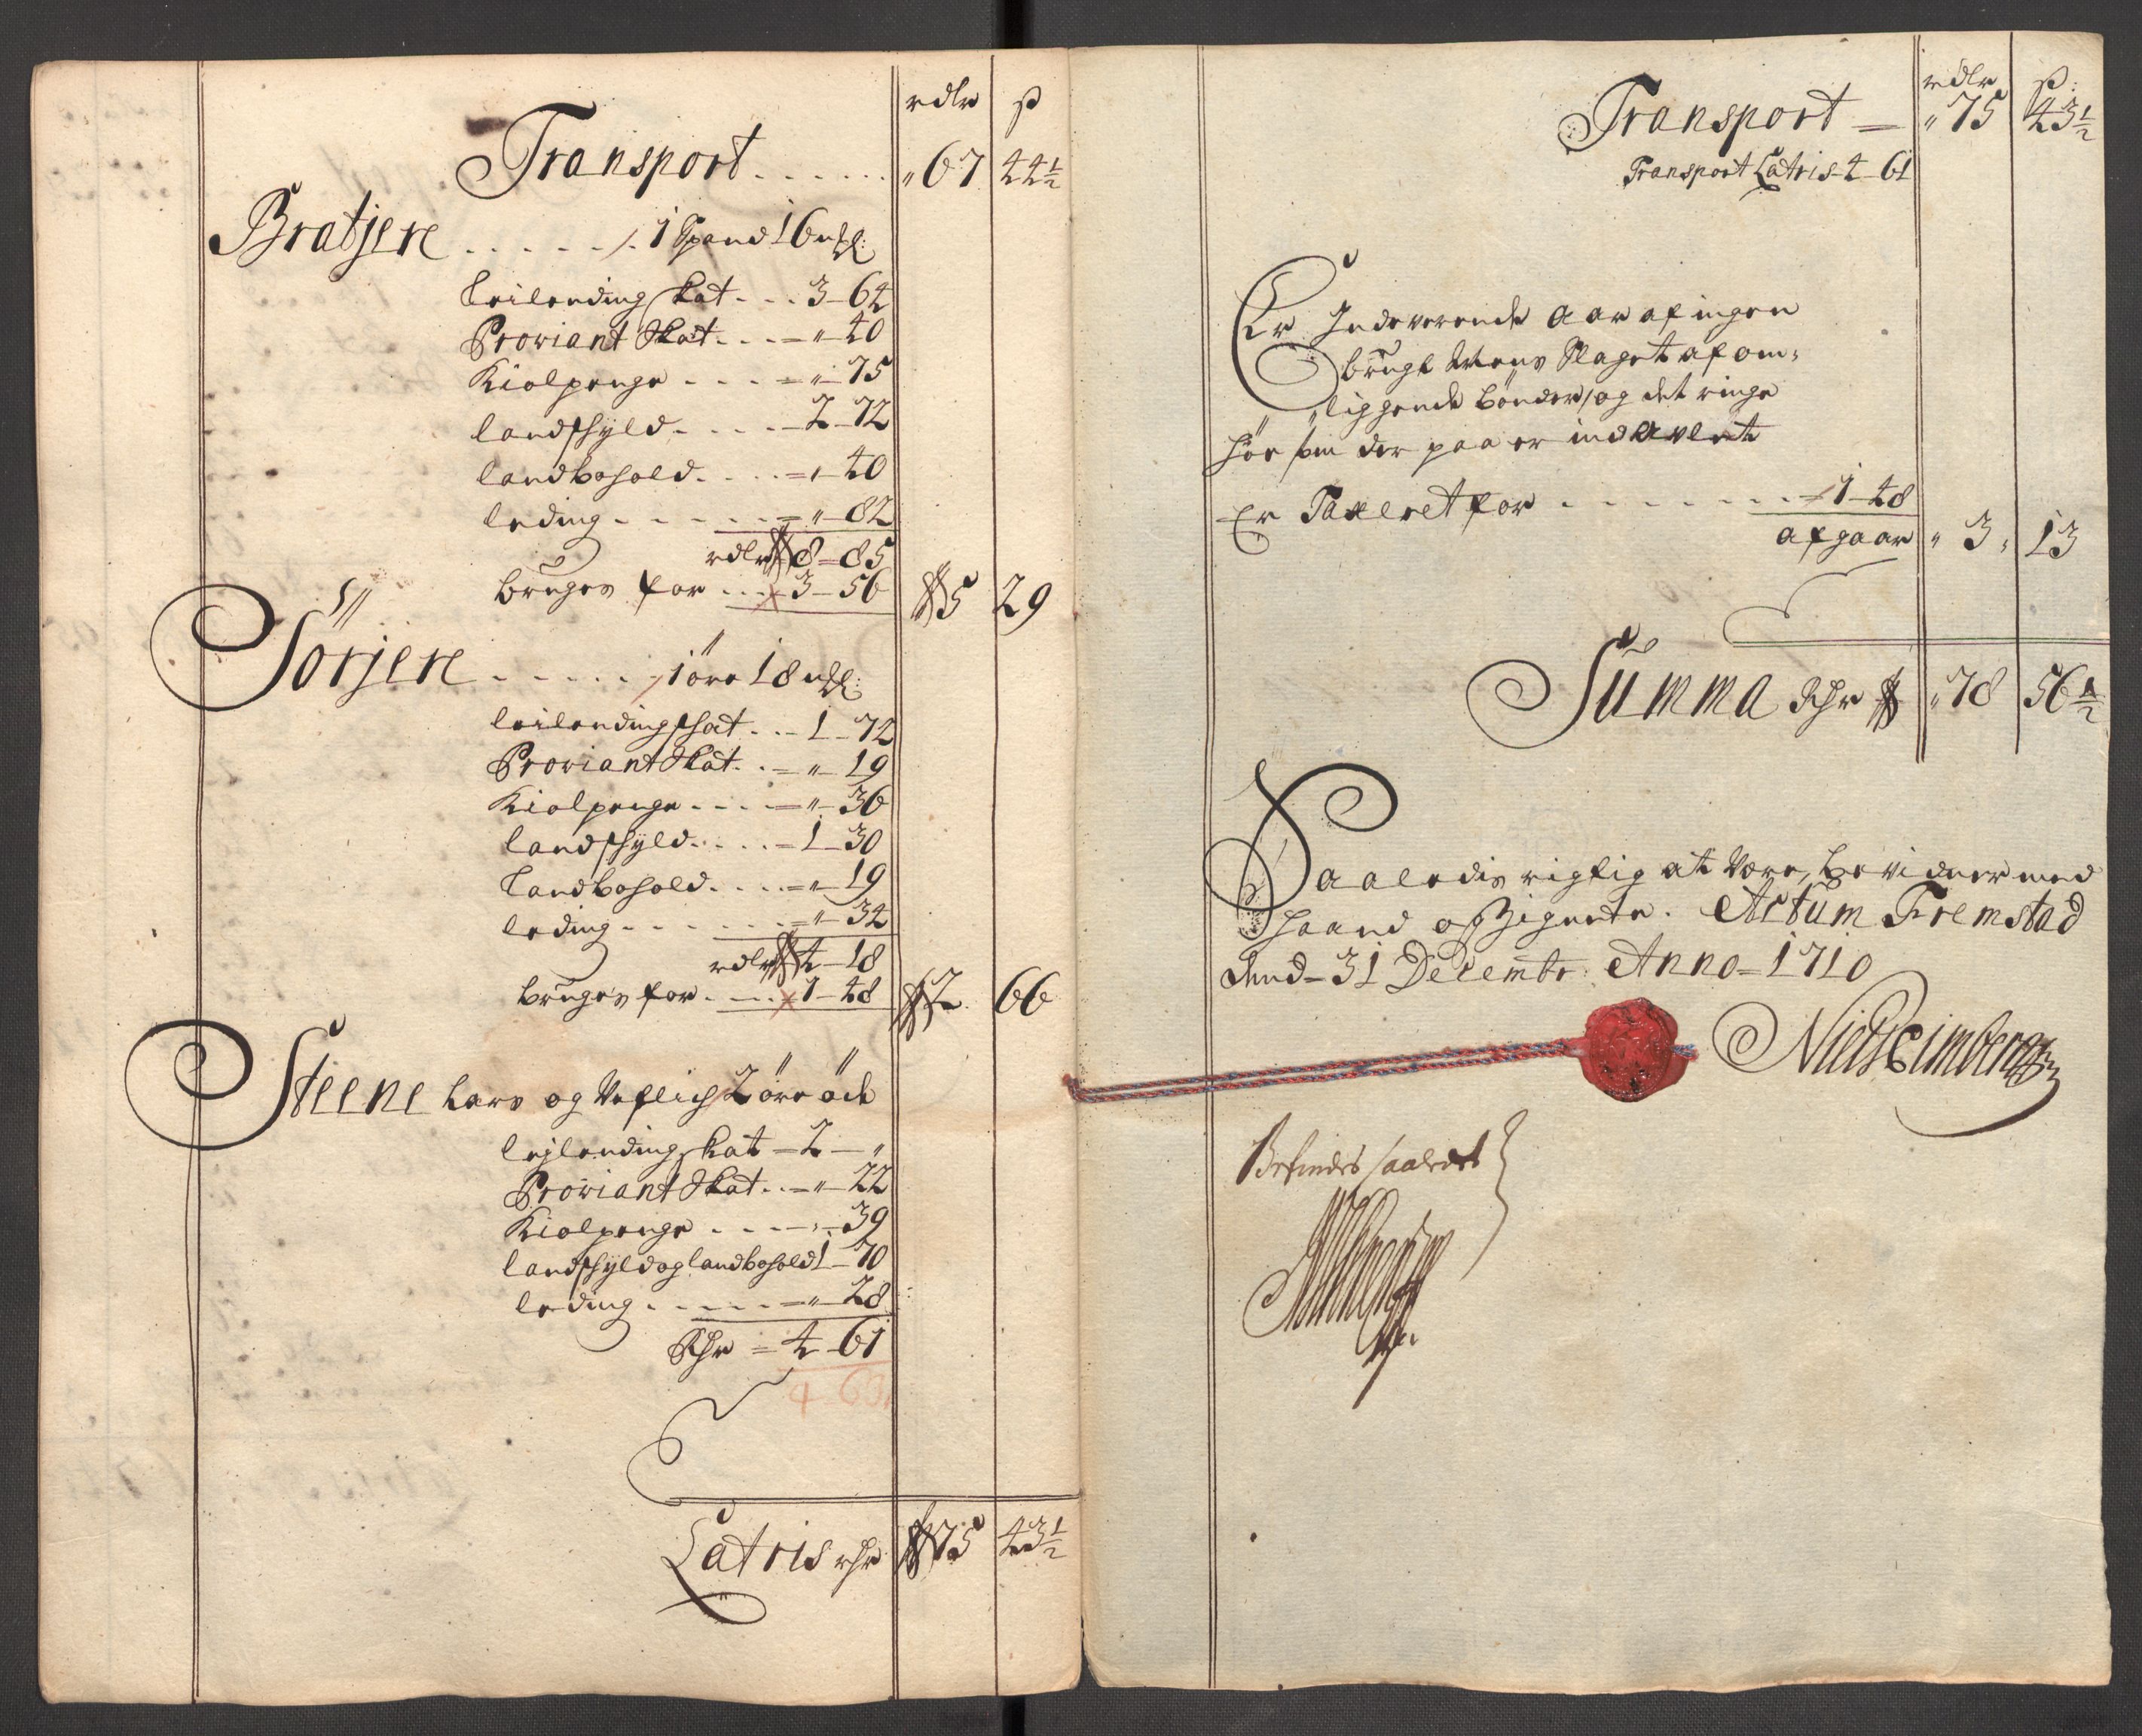 rdlr ß
Transport . . . . . . " 67 44½
Bratjere . . . . . . 1 Spand 16 mkl:
Leilending skat . . . 3 – 64
Proviant Skat . . . = " – 40
Kiolpenge . . . . = " – 75
landskyld . . . . – 2 – 72
landbohold . . . . = " – 40
leding . . . . . . = " – 82
rdlr 8 – 85
bruges for . . . 3 – 56 5 29
Sörjere . . . . . . 1 öre 18 mkl:
leilending skat . . – 1 – 72
Proviant Skat . . = " – 19
Kiolpenge . . . . = " – 36
landskyld . . . . = 1 – 30
Landbohold . . . . = " – 19
leding . . . . . . = " – 34
rdlr 4 – 18
bruges for . . . . 1 – 48 2 66
Steene Lars og 2 öre öde
lejlending skat = 2 – "
Proviant Skat . . = " – 22
Kiolpenge . . . . – " – 39
landskyld og landbohold 1 – 70
leding . . . . . = " – 28
Rdr = 4 – 61
Latris rdr 75 43½
rdlr ß:
Transport = " 75 43½
Transport Latris 4 – 61
Er Indeverende Aar af ingen
brugt Mens Slaget af om=
liggende bönder, og det ringe
höe som der paa er ind Avlet
Er Taxeret for . . . . . . . – 1 – 48
afgaar " 3 " 13
Summa Rdr " 78 56½
Saaledis rigtig at være, bevidner med
haand og Zignete. Actum Fremstad
dend – 31 Decembr: Anno = 1710
Befindes saaledes